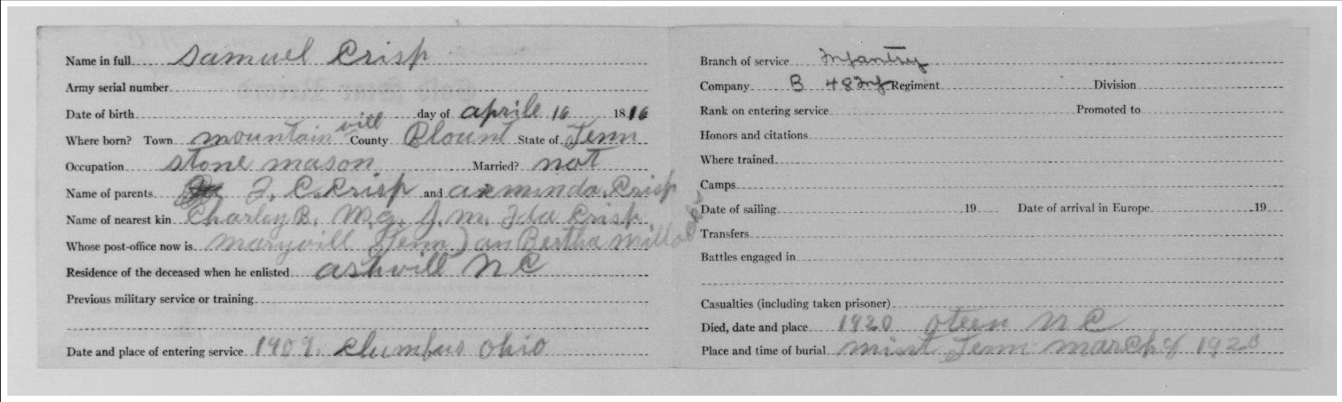 Name in full Samuel Crisp
Army serial number
Date of birth day of aprile 16 1816
Where born? Town mountain vill County Blount State of Tenn
Occupation stone mason Married? not
Name of parents J. C. Crisp and arminda Crisp
Name of nearest kin Charley B. M. g. J. m. Ida Crisp
Whose post-office now is maryvill Tenn) an Bertha
Residence of the deceased when he enlisted ashvill N C
Previous military service or training
Date and place of entering service 1909. Clumbus Ohio
Branch of service Infantry
Company B 48 Inf Regiment Division
Rank on entering service Promoted to
Honors and citations
Where trained
Camps
Date of sailing 19 Date of arrival in Europe 19
Transfers
Battles engaged in
Casualties (including taken prisoner)
Died, date and place 1920 oteen N C
Place and time of burial mint Tenn march 4 1920